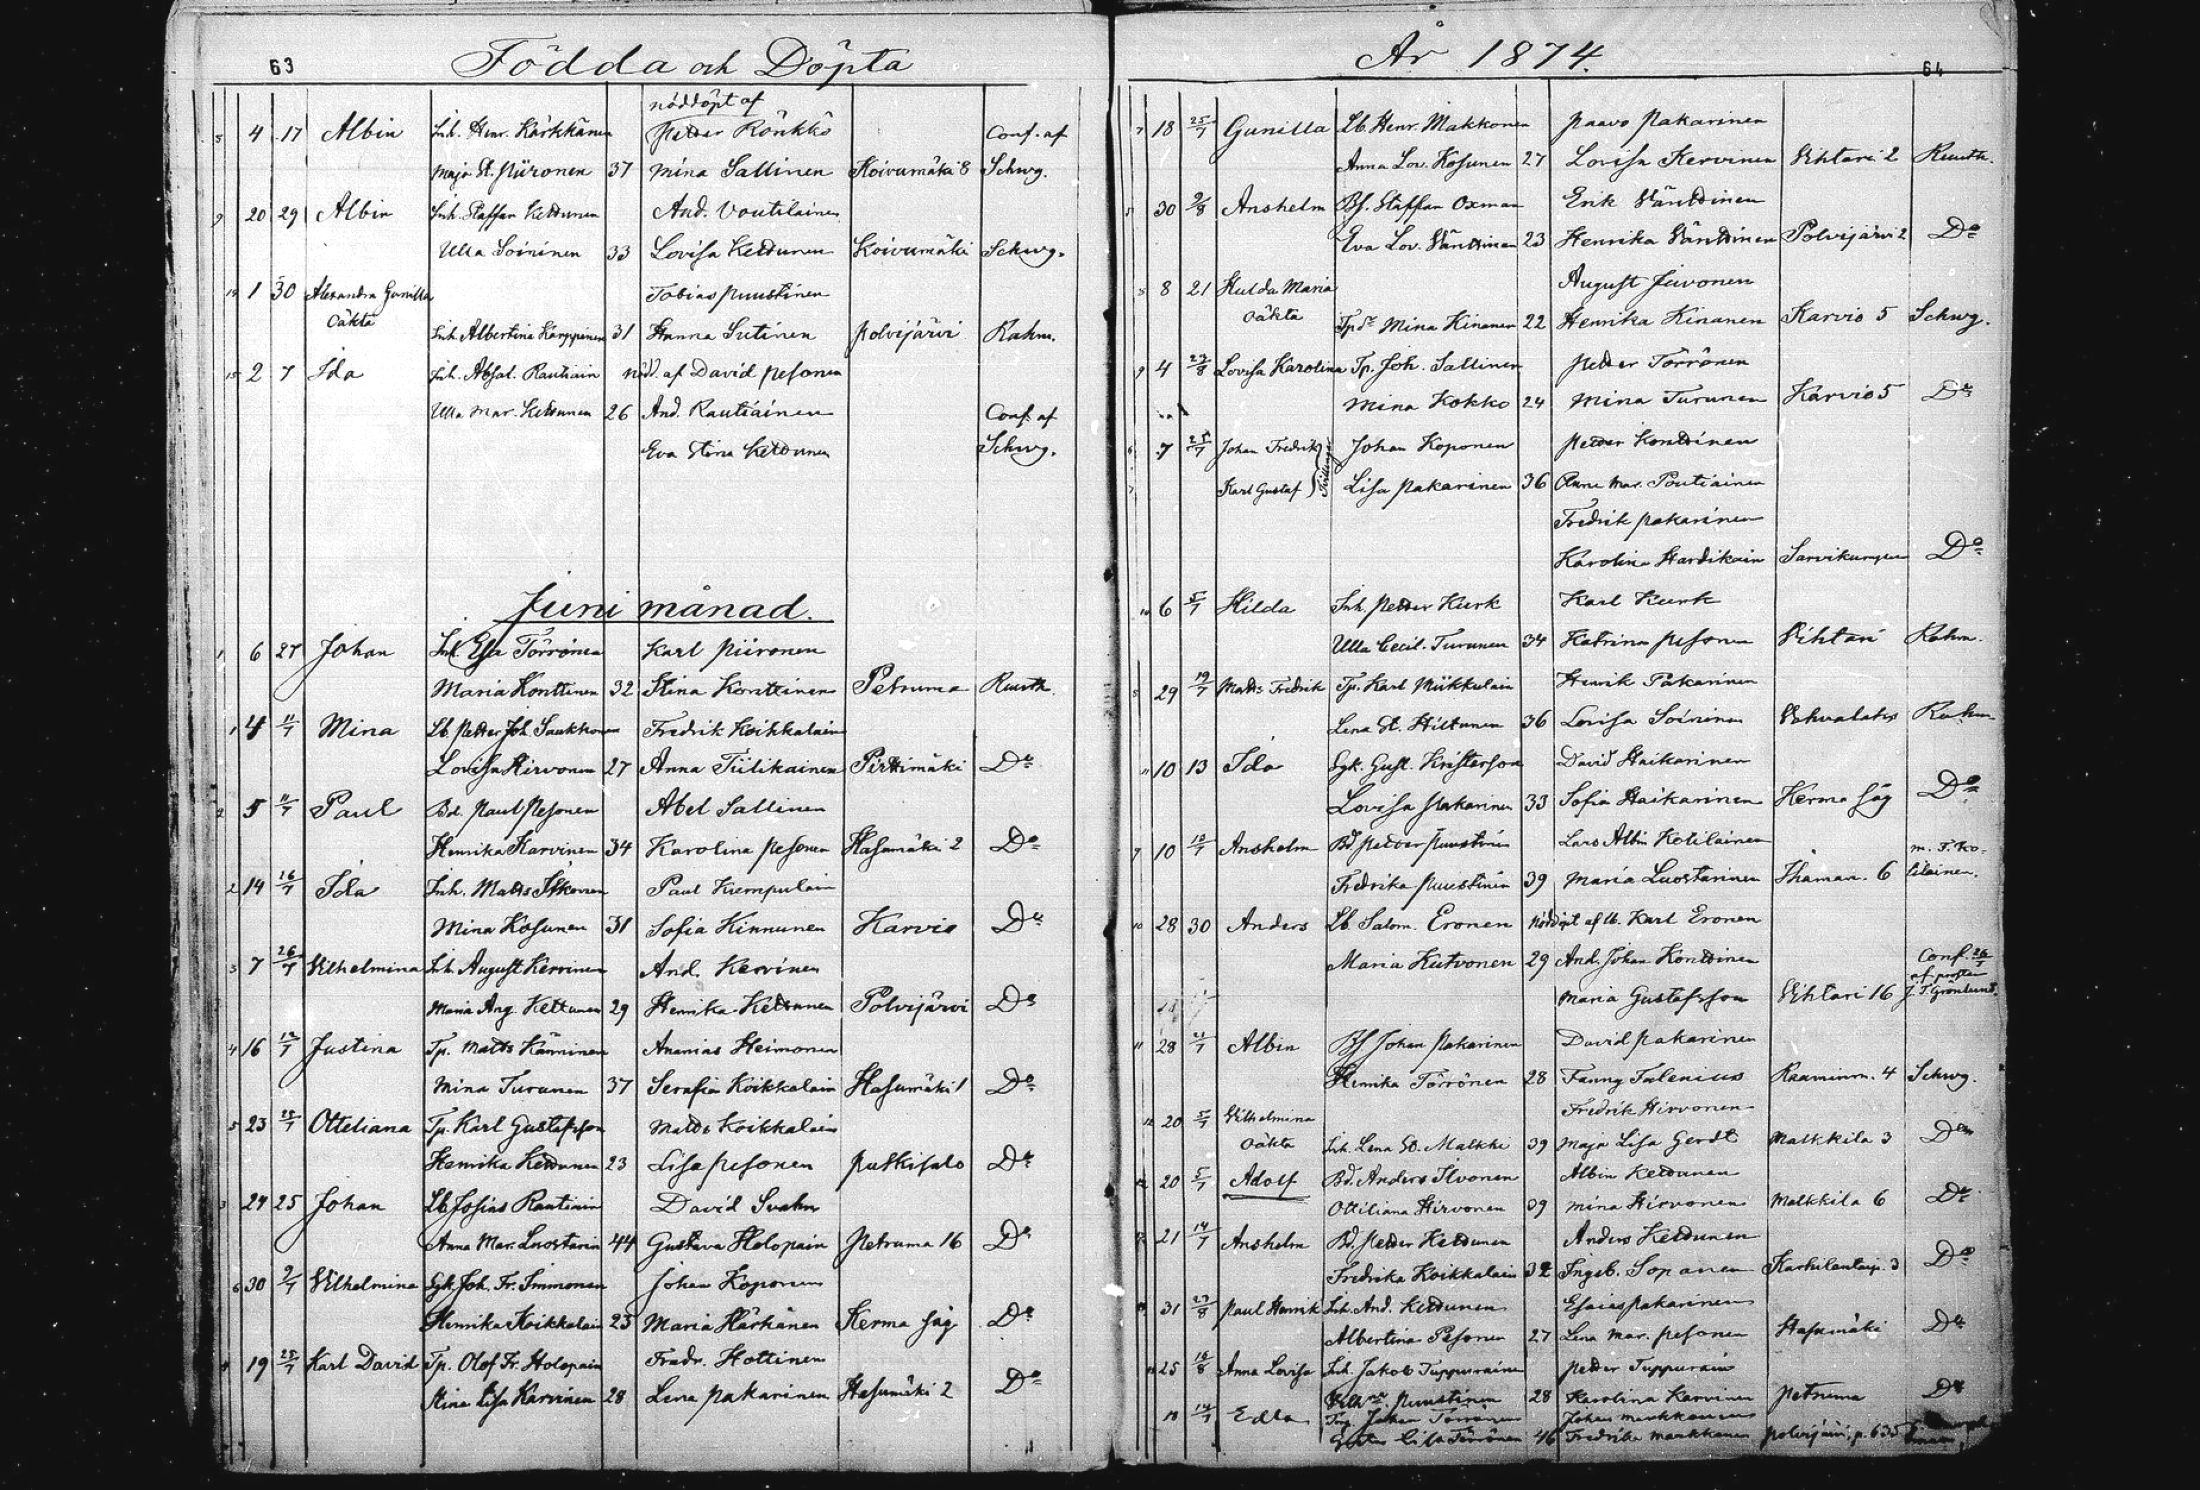 63
Födda och Döpta
nöddöpt af
8 4 17 Albin Inh. Henr. Kärkkänen Petter Rönkkö Conf. af
Maja St. Piironen 37 Mina Sallinen Koivumäki 8 Schwg.
9 20 29 Albin Inh. Staffan Kettunen And. Voutilainen
Ulla Soininen 33 Lovisa Kettunen Koivumäki Schwg.
1 30 Alexandra Gunilla Tobias Puustinen
oäkta Inh. Albertina Karppinen 31 Hanna Sutinen Polvijärvi Rahm.
15 2 7 Ida Inh. Absal. Rautiain nöd. af David Pesonen
Ulla Mar. Kettunen 26 And. Rautiainen Conf. af
Eva Stina Kettunen Schwg.
Juni månad.
1 6 27 Johan Inh. Esa Törrönen Karl Piironen
Maria Konttinen 32 Stina Konttinen Petruma Ruuth.
1 4 11/7 Mina Lb. Petter Joh. Saukkonen Fredrik Koikkalain
Lovisa Hirvonen 27 Anna Tiilikainen Pirttimäki Do
2 5 11/7 Paul Bd. Paul Pesonen Abel Sallinen
Henrika Karvinen 34 Karolina Pesonen Hasumäki 2 Do
2 14 16/7 Ida Inh. Matts Itkonen Paul Kumpulain
Mina Kosunen 31 Sofia Kinnunen Karvio Do
3 7 26/7 Vilhelmina Inh. August Kervinen And. Kervinen
Maria Aug. Kettunen 29 Henrika Kettunen Polvijärvi Do
4 16 12/7 Justina Tp. Matts Känninen Ananias Heimonen
Mina Turunen 37 Serafia Koikkalain Hasumäki 1 Do
5 23 Otteliana Tp. Karl Gustafsson Matts Koikkalain
Henrika Kettunen 23 Lisa Pesonen Putkisalo Do
3 24 25 Johan Lb. Josias Rautiain David Svahn
Anna Mar. Luostarin 44 Gustava Holopain Petruma 16 Do
6 30 9/7 Vilhelmina Sgk. Joh. Fr. Immonen Johan Koponen
Henrika Koikkalain 23 Maria Härkänen Kerma såg Do
4 19 25/7 Karl David Tp. Olof Fr. Holopain Fredr. Hottinen
Stina Lisa Karvinen 28 Lena Pakarinen Hasumäki 2 Do
År 1874.
64
7 18 25/7 Gunilla Lb. Henr. Makkonen Paavo Pakarinen
Anna Lov. Kosunen 27 Lovisa Kervinen Vihtari 2 Ruuth.
5 30 9/8 Anshelm Bs. Staffan Oxman Erik Vänttinen
Eva Lov. Vänttinen 23 Henrika Vänttinen Polvijärvi 2 Do
8 8 21 Hulda Maria August Juvonen
oäkta Tpdr Mina Kinanen 22 Henrika Kinanen Karvio 5 Schwg.
9 4 Lovisa Karolina Tp. Joh. Sallinen Petter Törrönen
Mina Kokko 24 Mina Turunen Karvio 5 Do
6 7 25/7 Johan Fredrik Johan Koponen Petter Konttinen
7 Karl Gustaf Tvillingar Lisa Pakarinen 36 Anna Mar. Poutiainen
Fredrik Pakarinen
Karolina Hardikain Sarvikumpu Do
10 6 5/7 Hilda Inh. Petter Kurk Karl Kurk
Ulla Cecil. Turunen 34 Katrina Pesonen Vihtari Rahm.
8 29 19/7 Matts Fredrik Tp. Karl Miikkulain Henrik Pakarinen
Lena St. Hiltunen 36 Lovisa Soininen Rahm
11 10 13 Ida Sgk. Gust. Kristerson David Haikarinen
Lovisa Pakarinen 33 Sofia Haikarinen Kerma såg Do
9 10 Anshelm Bd. Petter Puustinen Lars Albin Kotilainen m. F. Ko-
Fredrika Puustinen 39 Maria Luostarinen Ihaman. 6 tilainen.
10 28 30 Anders Lb. Salom. Eronen Nöddöpt af lb. Karl Eronen
Maria Kutvonen 29 And. Johan Konttinen Conf. 26/7
af prosten
Maria Gustafsson Vihtari 16 J. F. Grönlund.
11 28 Albin Bs Johan Pakarinen David Pakarinen
Henrika Törrönen 28 Fanny Talenius Raaminm. 4 Schwg.
12 20 5/7 Vilhelmina Fredrik Hirvonen
oäkta Inh. Lena St. Malkki 39 Maja Lisa Gerdt Malkkila 3 Do
12 20 5/7 Adolf Bd. Anders Ilvonen Albin Kettunen
Ottiliana Hirvonen 39 Mina Hirvonen Malkkila 6 Do
21 14/7 Anshelm Bd. Petter Kettunen Anders Kettunen
Fredrika Koikkalain 32 Ingeb. Soponen Karhilantaip. 3 Do
31 23/8 Paul Henrik Inh. And. Kettunen Esaias Pakarinen
Albertina Pesonen 27 Lena Mar. Pesonen Hasumäki Do
25 16/8 Anna Lovisa Inh. Jakob Tuppurainen Petter Tuppurain
Vilhna. Puustinen 28 Karolina Karvinen Petruma Do
18 14/7 Edla Johan Törrönen Johan Markkanen
Lisa Törrönen 46 Fredrika Markkanen Polvijärvi, p. 635